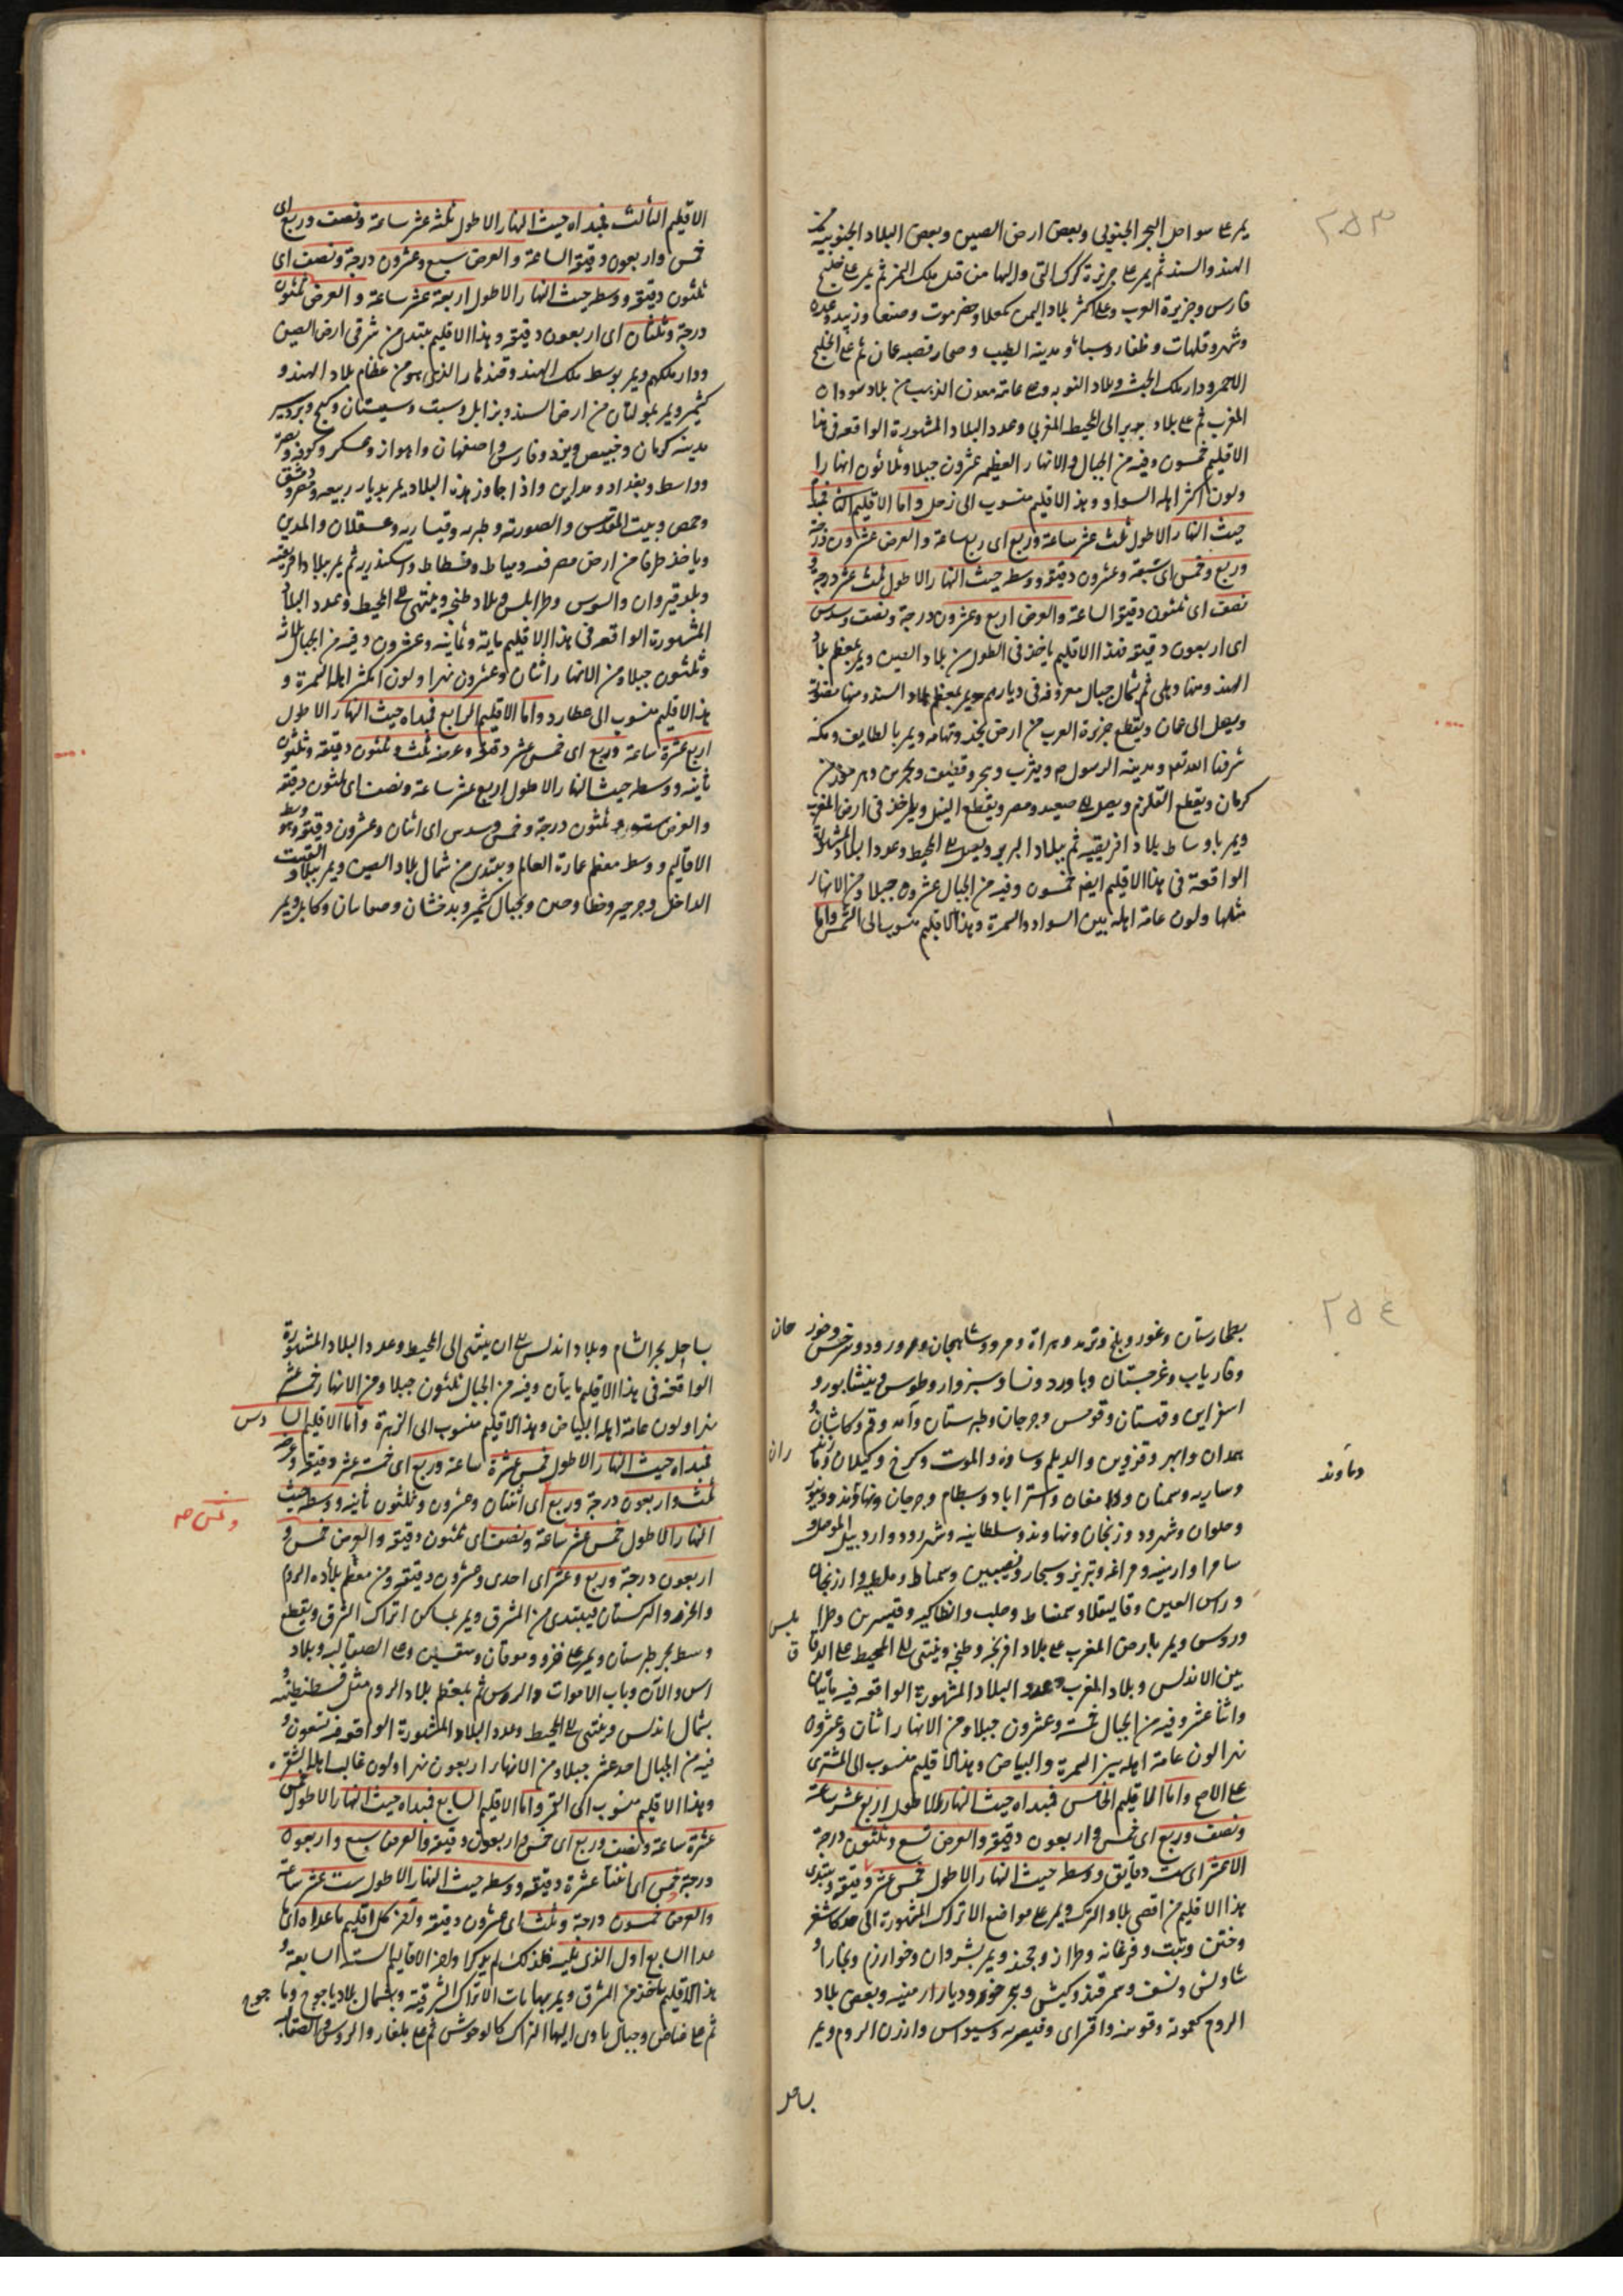 ٢٥٣
يمر على سواحل البحر الجنوبي وبعض ارض الصين وبعض البلاد الجنوبية من
الهند والسند ثم يمر على جزيرة كرك التي واليها من قبل ملك اليمن ثم يمر على خليج
فارس وجزيرة العرب وعلى اكثر بلاد اليمن كمعلا وحضرموت وصنعا وزبيد وعدن
وشهر وقلهات وظفار وسبا ومدينة الطيب وصحار قصبه عمان ثم على الخليج
الاحمر ودار ملك الحبش وبلاد النوبه وعلى عامة معدن الذهب من بلاد سودان
المغرب ثم على بلاد بربر الى المحيط المغربي وعدد البلاد المشهورة الواقعه في هذا
الاقليم خمسون وفيه من الجبال والانهار العظيمه عشرون جبلا وثلاثون انهارا
ولون اكثر اهله السواد وهذا الاقليم منسوب الى زحل واما الاقليم الثانى فمبدأه
حيث النهار الاطول ثلث عشر ساعة وربع اى ربع ساعة والعرض عشرون درجة
وربع وخمس اى سبعة وعشرون دقيقه ووسطه حيث النهار الاطول ثلث عشر درجة و
نصف اى ثلثون دقيقة الساعة والعرض اربع وعشرون درجة ونصف وسدس
اى اربعون دقيقه فهذا الاقليم ياخذ في الطول من بلاد الصين ويمر بمعظم بلاد
الهند ومنها دهلى ثم شمال جبال معروفه في ديارهم ويمر بمعظم بلاد السند ومنها منصورة
ويصل الى عمان ويقطع جزيرة العرب من ارض نجد وتهامه ويمر بالطايف ومكة
شرفها الله تعالى ومدينة الرسول م ويثرب وهجر وقطيف وبحرين وهرموز من
كرمان ويقطع القلزم ويصل الى صعيد ومصر ويقطع النيل وياخذ في ارض المغرب
ويمر باوساط بلاد افريقيه ثم ببلاد البربر ويصل الى المحيط وعدد البلاد المشهورة
الواقعة في هذا الاقليم ايضا خمسون وفيه من الجبال عشرون جبلا ومن الانهار
مثلها ولون عامة اهله بين السواد والسمرة وهذا الاقليم منسوب الى الشمس واما
الاقليم الثالث فمبداه حيث النهار الاطول ثلثة عشر ساعة ونصف وربع اى
خمس واربعون دقيقة الساعة والعرض سبع وعشرون درجة ونصف اى
ثلثون دقيقه ووسطه حيث النهار الاطول اربعة عشر ساعة والعرض ثلثون
درجة وثلثان اى اربعون دقيقه وهذا الاقليم يبتدئ من شرقي ارض الصين
ودار ملكهم ويمر بوسط ملك الهند وقندهار الذى هو من عظام بلاد الهند و
كشمير ويمر بمولتان من ارض السند وبزابل وبست وسيستان وكيج وبردسير
مدينة كرمان وخبيص ويزد وفارس واصفهان واهواز وعسكر وكوفة وبصرة
وواسط وبغداد ومداين واذا جاوز هذه البلاد يمر بديار ربيعه ومضر ودمشق
وحمص وبيت المقدس والصورته وطبريه وقيساريه وعسقلان والمدين
وياخذ طرفا من ارض مصر فيه دمياط وفسطاط واسكندريه ثم يمر ببلاد افريقيه
وبلد قيروان والسوس وطرابلس وبلاد طنجه وينتهي الى المحيط وعدد البلاد
المشهورة الواقعه في هذا الاقليم مايه وثمانيه وعشرون وفيه من الجبال ثلاثة
وثلثون جبلا ومن الانهار اثنان وعشرون نهرا ولون اكثر اهله السمرة و
هذا الاقليم منسوب الى عطارد واما الاقليم الرابع فمبداه حيث النهار الاطول
اربع عشرة ساعة وربع اى خمس عشر دقيقة وعرضه ثلث وثلثون دقيقه وثلثون
ثانيه ووسطه حيث النهار الاطول اربع عشر ساعة ونصف اى ثلثون دقيقه
والعرض ست وثلثون درجة وخمس وسدس اى اثنان وعشرون دقيقة وهو وسط
الاقاليم ووسط معظم عمارة العالم ويبتدئ من شمال بلاد الصين ويمر ببلاد التبت
الداخل وجرجير وخطا وختن وبجبال كشمير وبدخشان وصغانيان وكابل ويمر
٢٥٤
بطخارستان وغور وبلخ وترمد وهراة ومرو وشاهجان ومرورود وسرخس وجوزجان
وفارياب وغرجستان وباورد ونسا وسبزوار وطوس ونيشابور و
اسفراين وقهستان وقومس وجرجان وطبرستان وآمد وقم وكاشان و
همدان وابهر وقزوين والديلم وساوه والموت وكرخ وكيلان ومازندران
دماوند
وساريه وسمنان ودامغان واستراباد وبسطام وجرجان ونهاوند ودينور
وحلوان وشهرود وزنجان ونهاوند وسلطانيه وشهررود واردبيل والموصل و
سامرا وارمنيه ومراغه وتبريز وسنجار ونصيبين وسمساط وملطيه وارزنجان
وراس العين وقاليقلا وسمساط وحلب وانطاكيه وقنسرين وطرابلس
وروس ويمر بارض المغرب على بلاد افرنجه وطنجه وينتهى الى المحيط على الزقاق
بين الاندلس وبلاد المغرب وعدد البلاد المشهورة الواقعه فيه مأتان
واثنا عشر وفيه من الجبال خمسة وعشرون جبلا ومن الانهار اثنان وعشرون
نهرا لون عامة اهله بين السمرة والبياض وهذا الاقليم منسوب الى المشترى
على الاصح واما الاقليم الخامس فمبداه حيث النهار الاطول اربع عشر ساعة
ونصف وربع اى خمس واربعون دقيقه والعرض تسع وثلثون درجة
الا عشر اى ست دقايق ووسطه حيث النهار الاطول خمس عشر دقيقه ويبتدى
هذا الاقليم من اقصى بلاد الترك ويمر على مواضع الاتراك المشهورة الى حد كاشغر
وختن وتبت وفرغانه وطراز وخجند ويمر بشروان وخوارزم وبخارا و
شاوش ونسف وسمرقند وكيش وبحر خزر وديار ارمنيه وبعض بلاد
الروم كعمورية وقونيه واقسراى وقيصريه وسيواس وارزن الروم ويمر
بساحل
بساحل بحر الشام وبلاد اندلس الى ان ينتهى الى المحيط وعدد البلاد المشهورة
الواقعة في هذا الاقليم مايتان وفيه من الجبال ثلثون جبلا ومن الانهار خمسة عشر
نهرا ولون عامة اهله البياض وهذا الاقليم منسوب الى الزهرة واما الاقليم السادس
فمبداه حيث النهار الاطول خمس عشرة ساعة وربع اى خمسة عشر دقيقه وعرضه
ثلث واربعون درجة وربع اى اثنتان وعشرون وثلثون ثانيه ووسطه حيث
وثمن صح
النهار الاطول خمس عشر ساعة ونصف اى ثلثون دقيقه والعرض خمس و
اربعون درجة وربع وعشر اى احدى وعشرون دقيقه ومن معظم بلاده الروم
والخزر والتركستان فيبتدى من المشرق ويمر بمساكن اتراك الشرق ويقطع
وسط بحر طبرستان ويمر على خزر وموقان وسقسين وعلى الصقالبه وبلاد
اس والآن وباب الابواب والروس ثم بمعظم بلاد الروم مثل قسطنطنيه و
بشمال اندلس وينتهى الى المحيط وعدد البلاد المشهورة الواقعه فيه تسعون و
فيه من الجبال احد عشر جبلا ومن الانهار اربعون نهرا ولون غالب اهله الشقره
وهذا الاقليم منسوب الى القمر واما الاقليم السابع فمبداه حيث النهار الاطول خمس
عشرة ساعة ونصف وربع اى خمس واربعون دقيقة والعرض سبع واربعون
درجة وخمس اى اثنتا عشرة دقيقه ووسطه حيث النهار الاطول ست عشر ساعة
والعرض خمسون درجة وثلث اى عشرون دقيقه وآخر كل اقليم ماعداه اى ما
عدا السابع اول الذى يليه فلذلك لم يذكر اواخر الاقاليم الستة السابعة و
هذا الاقليم ياخذ من المشرق ويمر بنهايات الاتراك الشرقية وبشمال بلاد ياجوج وماجوج
ثم على غياض وجبال ياوى اليها اتراك كالوحوش ثم على بلغار والروس والصقالبه